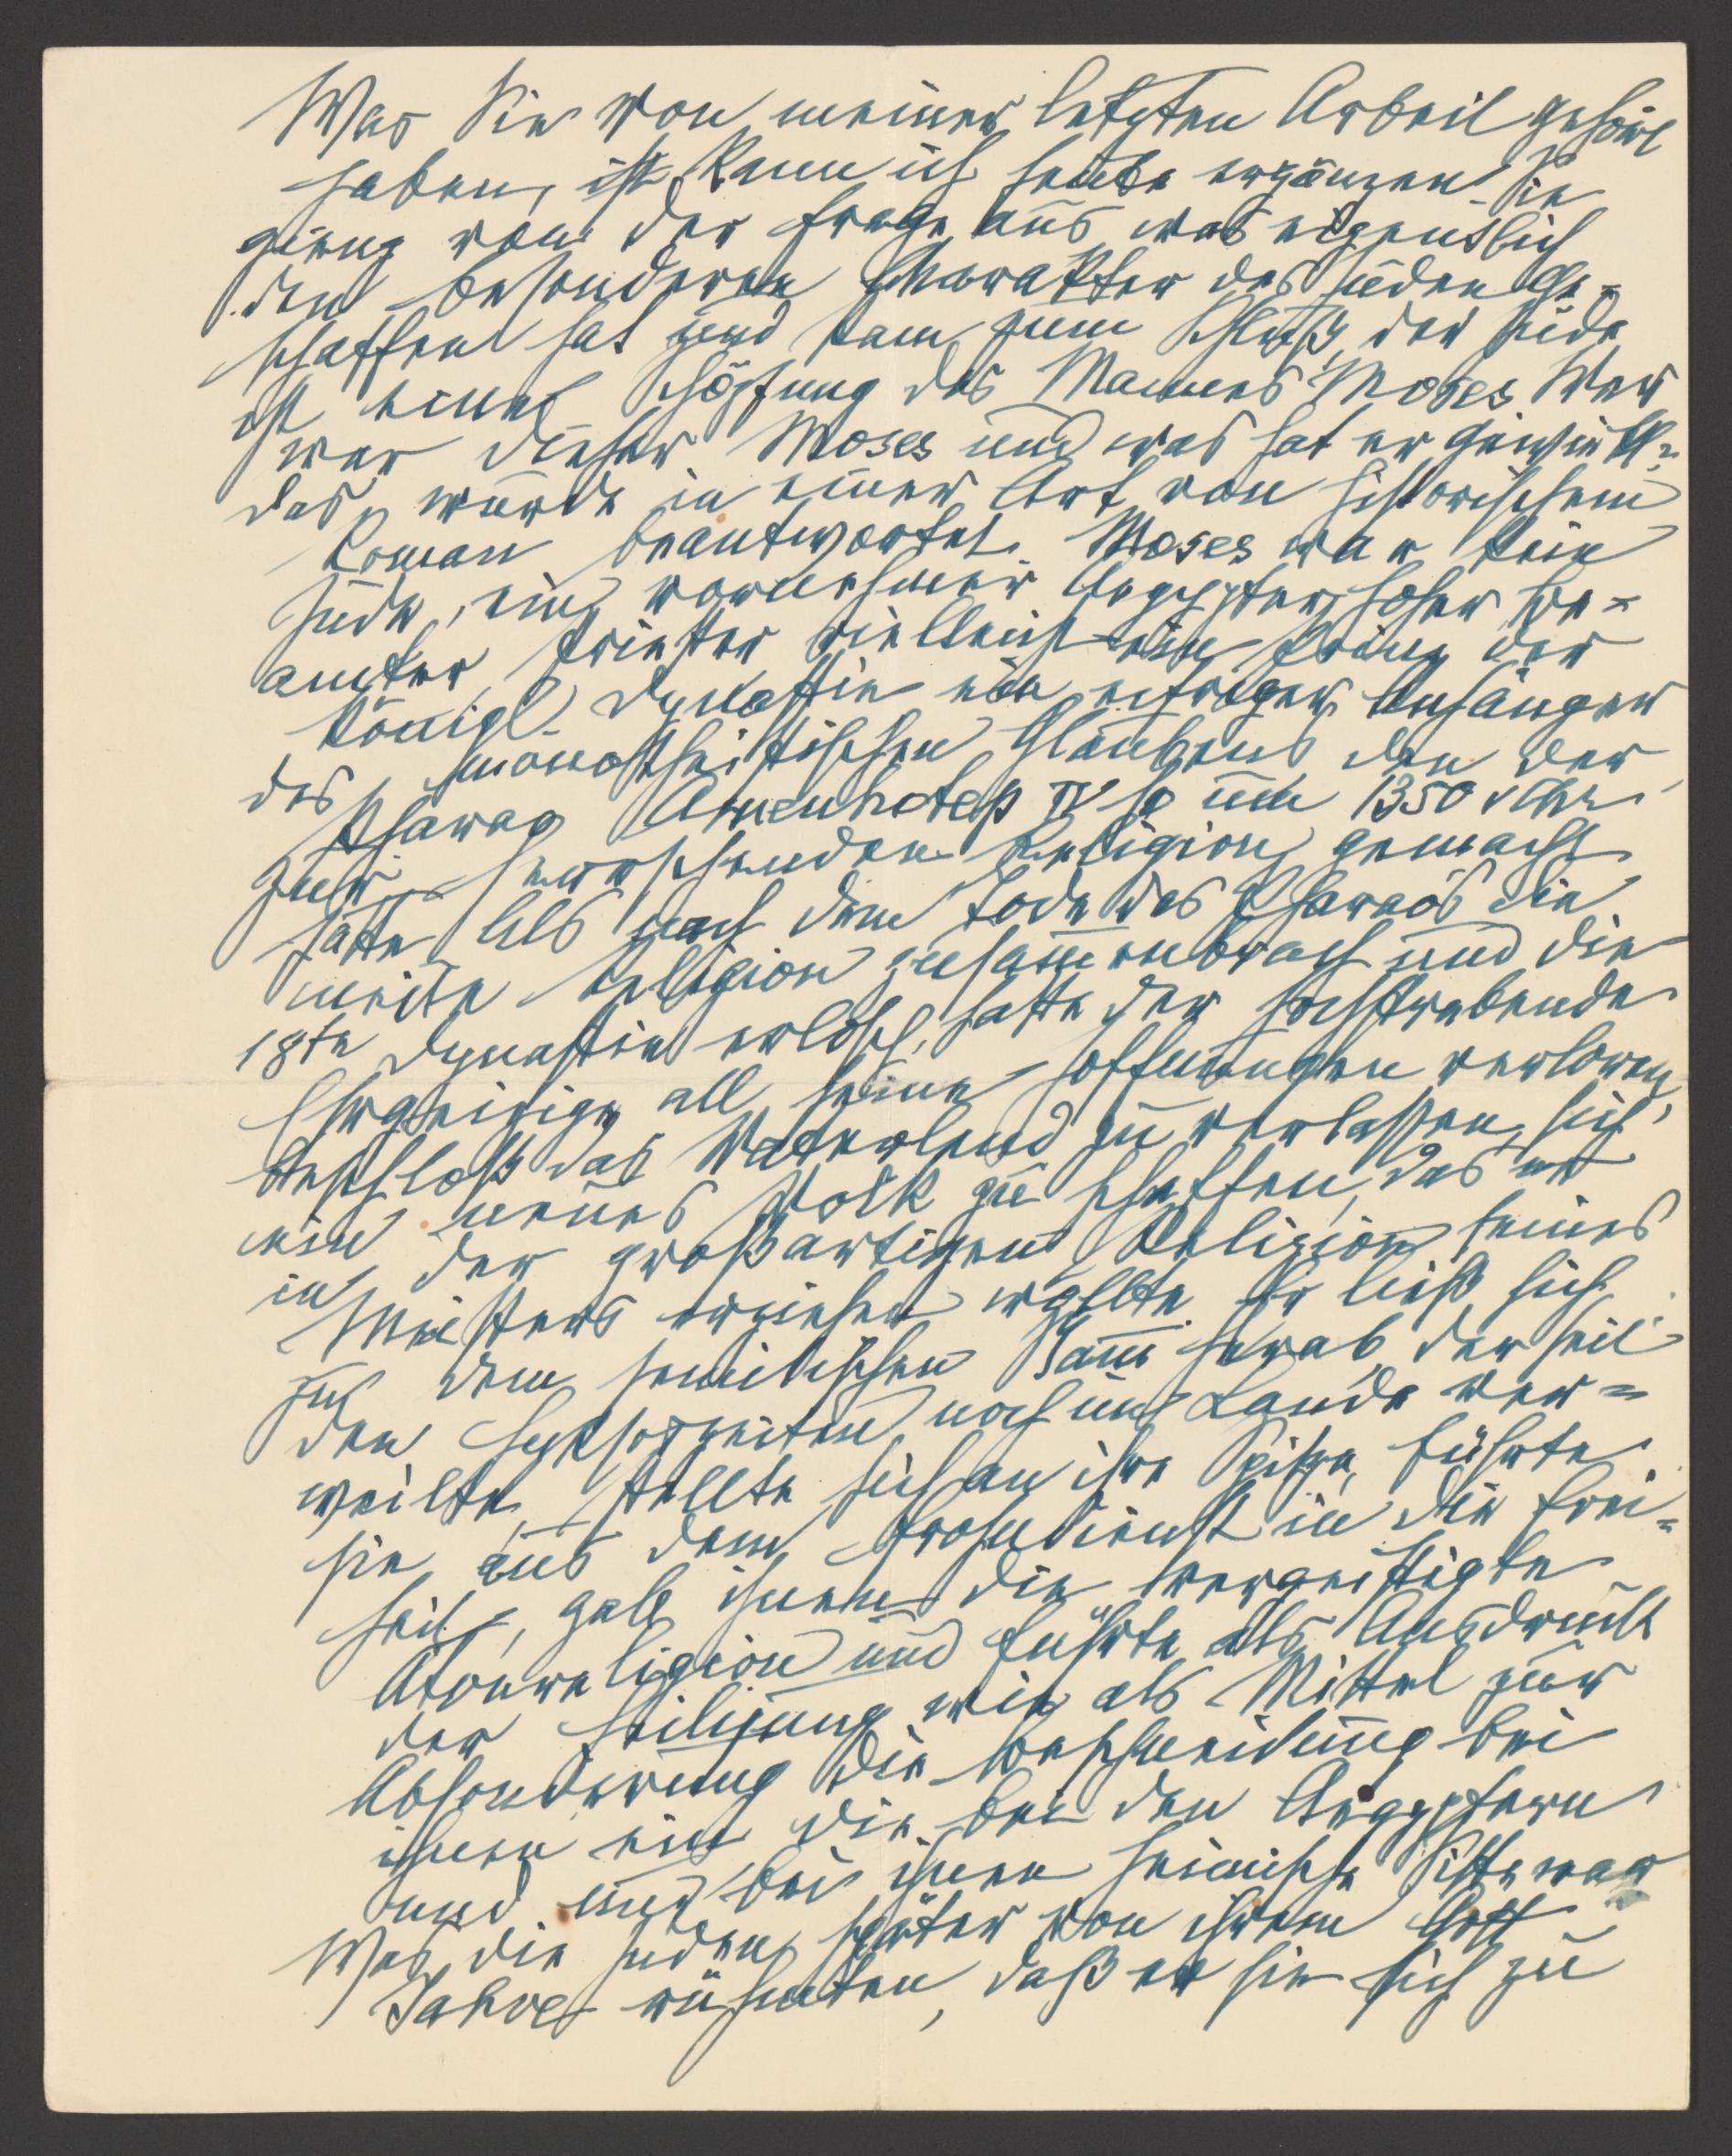 Was Sie von meiner letzten Arbeit gehört
haben, ist kann ich heute ergänzen. Sie
gieng von der Frage aus, was eigentlich
den besonderen Charakter des Juden ge-
schaffen hat und kam zum Schluß, der Jude
ist eine Schöpfung des Mannes Moses. Wer
war dieser Moses und was hat er gewirkt?
das wurde in einer Art von historischem
Roman beantwortet. Moses war kein
Jude, ein vornehmer Aegypter, hoher Be-
amter, Priester, vielleicht ein Prinz der
königl. Dynastie ein eifriger Anhänger
des monotheistischen Glaubens, den der
Pharao Amenhotep IV so um 1350 v Chr.
zur herrschenden Religion gemacht
hatte. Als nach dem Tode des Pharao's die
neue Religion zusammenbrach und die
18te Dynastie erlosch, hatte der hochstrebende
Ehrgeizige all seine Hoffnungen verloren,
beschloß das Vaterland zu verlassen, sich
ein neues Volk zu schaffen, das er
in der großartigen Religion seines
Meisters erziehen wollte. Er ließ sich
zu dem semitischen Stamm herab, der seit
den Hyksoszeiten noch im Lande ver-
weilte, stellte sich an ihre Spitze, führte
sie aus dem Frohndienst in die Frei-
heit, gab ihnen die vergeistigte
Atonreligion und führte als Ausdruck
der Heiligung wie als Mittel zur
Absonderung die Beschneidung bei
ihnen ein, die bei den Aegyptern
und nur bei ihnen heimische Sitte war
Was die Juden später von ihrem Gott
Jahve rühmten, daß er sie sich zu